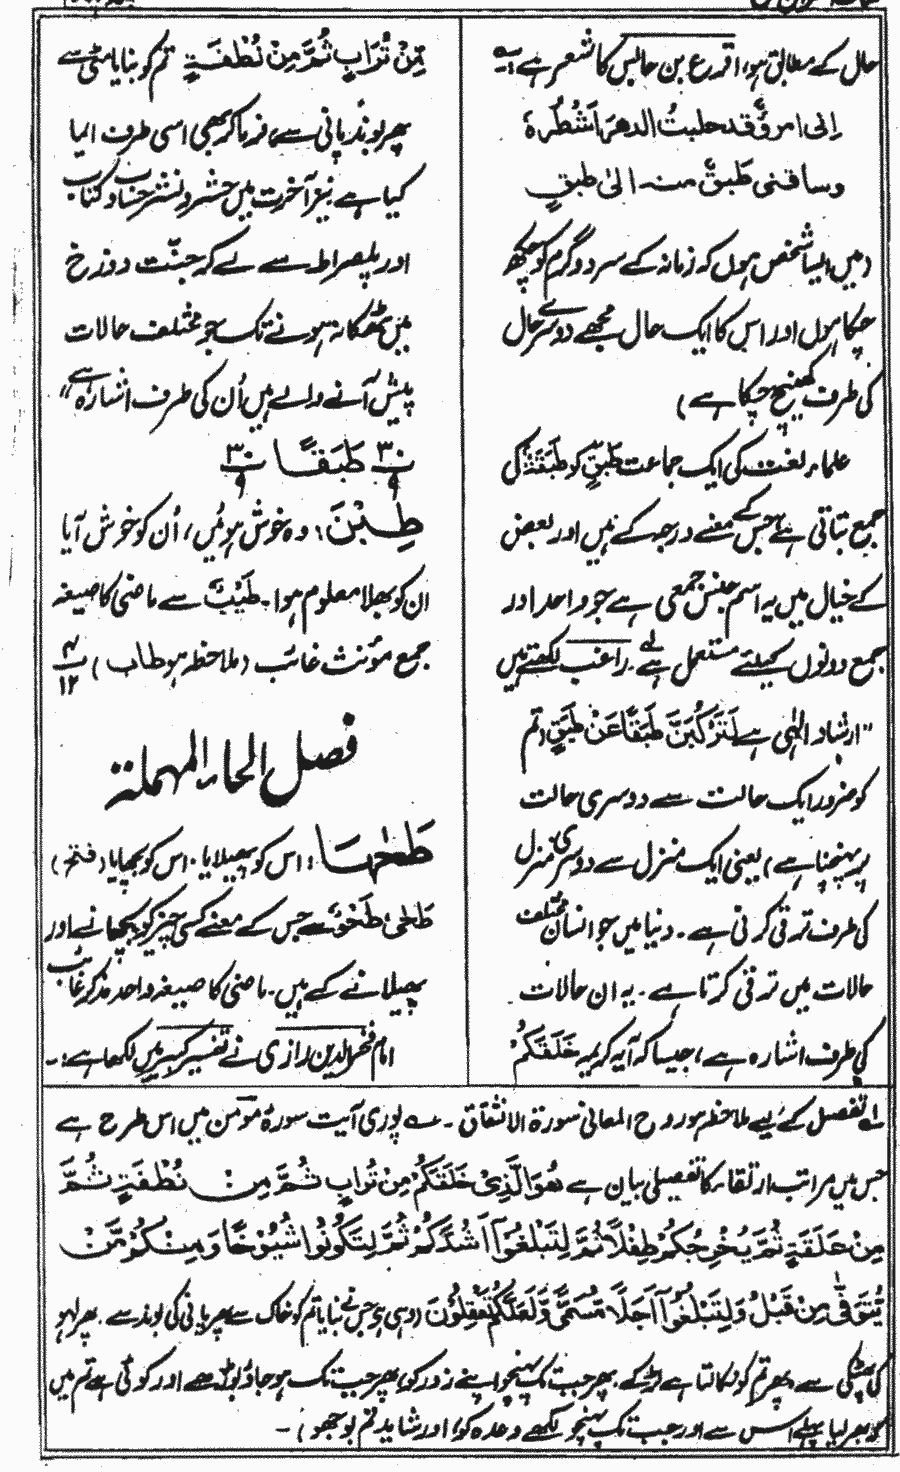 حال کے مطابق ہو، اقرع بن حابس کا شعر ہے ؎
اِنی امرؤٌ قد حلبتُ الدهرَ اَشْطُرَهٗ
وساقنی طَبَقٌ منه الیٰ طبقٍ
(میں ایسا شخص ہوں کہ زمانہ کے سرد و گرم کو چکھ
چکا ہوں اور اس کا ایک حال مجھے دوسرے حال
کی طرف کھینچ چکا ہے)
علماء لغت کی ایک جماعت طَبَقٍ کو طَبَقَۃٌ کی
جمع بتاتی ہے جس کے معنے درجہ کے ہیں اور بعض
کے خیال میں یہ اسم جنس جمعی ہے جو واحد اور
جمع دونوں کیلئے مستعمل ہے۔ راغب لکھتے ہیں
"ارشاد الٰہی ہے لَتَرْكَبُنَّ طَبَقًا عَنْ طَبَقٍ (تم
کو ضرور ایک حالت سے دوسری حالت
پر پہنچنا ہے) یعنی ایک منزل سے دوسری منزل
کی طرف ترقی کرنی ہے۔ دنیا میں جو انسان مختلف
حالات میں ترقی کرتا ہے۔ یہ ان حالات
کی طرف اشارہ ہے، جیسا کہ آیہ کریمہ خَلَقَكُمْ
مِّنْ تُرَابٍ ثُمَّ مِنْ نُّطْفَةٍ تم کو بنایا مٹی سے
پھر بوند پانی سے، فرما کر بھی اسی طرف ایما
کیا ہے نیز آخرت میں حشر و نشر حساب و کتاب
اور پلصراط سے لے کر جنّت دوزخ
میں ٹھکانہ ہونے تک جو مختلف حالات
پیش آنے والے ہیں اُن کی طرف اشارہ ہے"
۳۰/۹ طَبَقًا ۳۰/۹
طِبْنَ: وہ خوش ہوئیں، اُن کو خوش آیا
ان کو بھلا معلوم ہوا۔ طَيْبٌ سے ماضی کا صیغہ
جمع مؤنث غائب (ملاحظہ ہو طاب) ۴/۱۲
فصل الحاء المهملة
طَحٰهَا: اس کو پھیلایا۔ اس کو بچھایا (فتح)
طَحٰی طَحْوٌ سے جس کے معنے کسی چیز کو بچھانے اور
پھیلانے کے ہیں۔ ماضی کا صیغہ واحد مذکر غائب
امام فخر الدین رازی نے تفسیر کبیر میں لکھا ہے:-
لہ تفصیل کے لیے ملاحظہ ہو روح المعانی سورۃ الانشقاق۔ ؎ پوری آیت سورۂ مؤمن میں اس طرح ہے
جس میں مراتب ارتقاء کا تفصیلی بیان ہے هُوَ الَّذِيْ خَلَقَكُمْ مِنْ تُرَابٍ ثُمَّ مِنْ نُطْفَةٍ ثُمَّ
مِنْ عَلَقَةٍ ثُمَّ يُخْرِجُكُمْ طِفْلًا ثُمَّ لِتَبْلُغُوْآ اَشُدَّكُمْ ثُمَّ لِتَكُوْنُوْا شُيُوْخًا وَمِنْكُمْ مَّنْ
يُّتَوَفّٰى مِنْ قَبْلُ وَلِتَبْلُغُوْآ اَجَلًا مُّسَمًّى وَّلَعَلَّكُمْ تَعْقِلُوْنَ (وہی ہے جس نے بنایا تم کو خاک سے پھر پانی کی بوند سے۔ پھر لہو
کی پھٹکی سے، پھر تم کو نکالتا ہے لڑکے۔ پھر جب تک پہنچو اپنے زور کو، پھر جب تک ہو جاؤ بوڑھے اور کوئی ہے تم میں
کہ بھر لیا پہلے اس سے اور جب تک پہنچو لکھے وعدہ کو، اور شاید تم بوجھو)۔